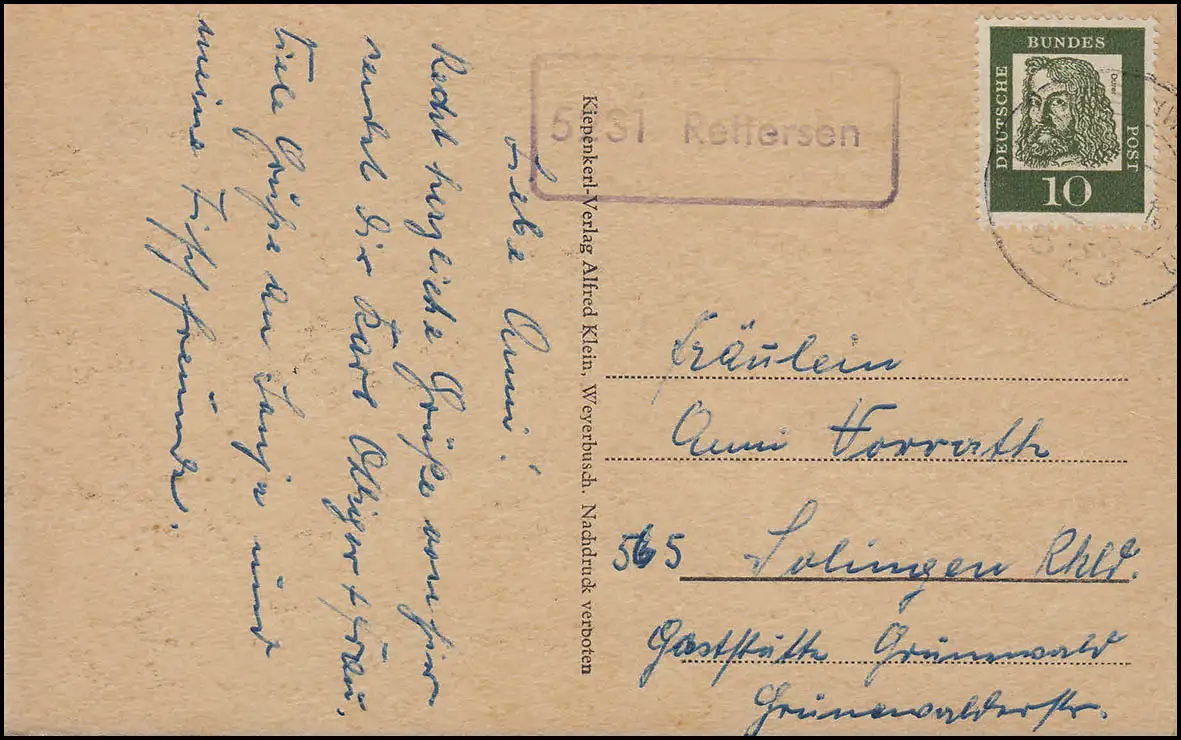 Liebe Anni!
Recht herzliche Grüße von hier
sendet dir Karl Ohliger + Frau.
Viele Grüße an Tanja und
meine Tischfreunde.
Kiepenkerl-Verlag Alfred Klein, Weyerbusch. Nachdruck verboten
5231 Rettersen
DEUTSCHE
BUNDES
POST
Dürer
10
Fräulein
Anni Vorrath
565 Solingen Rhld.
Gaststätte Grünewald
Grünewalderstr.